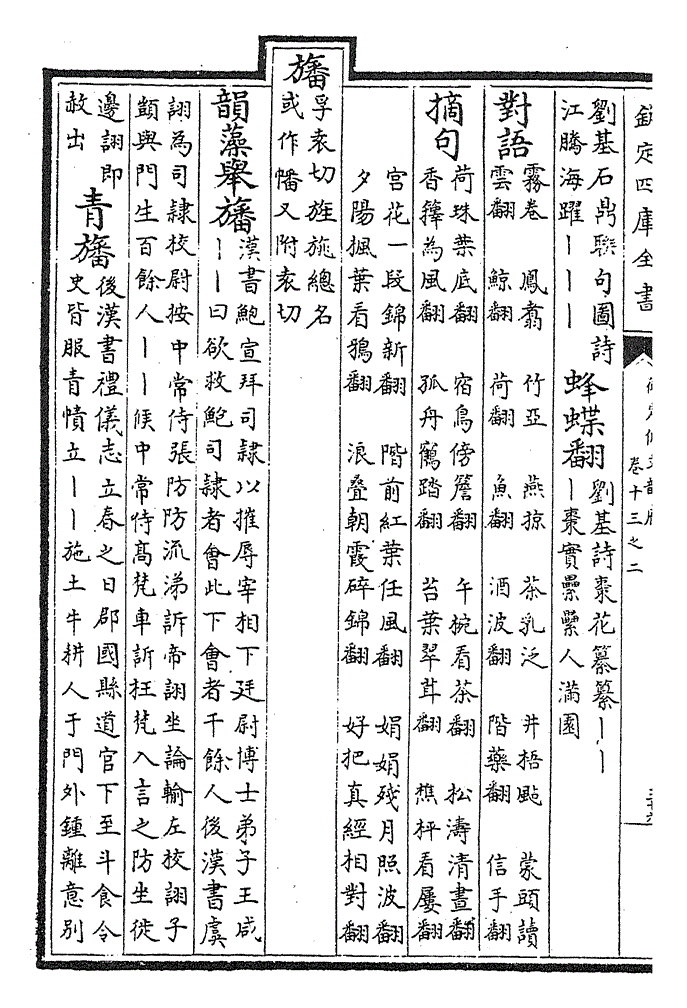 欽定四庫全書
卷十三之二
劉基石鼎聯句圖詩
江騰海躍丨丨丨
蜂蝶翻
劉基詩棗花纂纂丨丨
丨棗實纍纍人滿園
對語
霧卷 鳳翥 竹亞 燕掠 茶乳泛 井梧颭 蒙頭讀
雲翻 鯨翻 荷翻 魚翻 酒波翻 階藥翻 信手翻
摘句
荷珠葉底翻 宿鳥傍簷翻 午椀看茶翻 松濤清晝翻
香籜為風翻 孤舟鶴踏翻 苔葉翠茸翻 樵枰看屢翻
宮花一段錦新翻 階前紅葉任風翻 娟娟殘月照波翻
夕陽楓葉看鴉翻 浪叠朝霞碎錦翻 好把真經相對翻
旛
孚袁切旌旐總名
或作幡又附袁切
韻藻舉旛
漢書鮑宣拜司隸以摧辱宰相下廷尉博士弟子王咸
丨丨曰欲救鮑司隸者會此下會者千餘人後漢書虞
詡為司隸校尉按中常侍張防防流涕訴帝詡坐論輸左校詡子
顗與門生百餘人丨丨候中常侍髙梵車訴枉梵入言之防坐徙
邊詡即
赦出
青旛
後漢書禮儀志立春之日郡國縣道官下至斗食令
史皆服青幘立丨丨施土牛耕人于門外鍾離意別